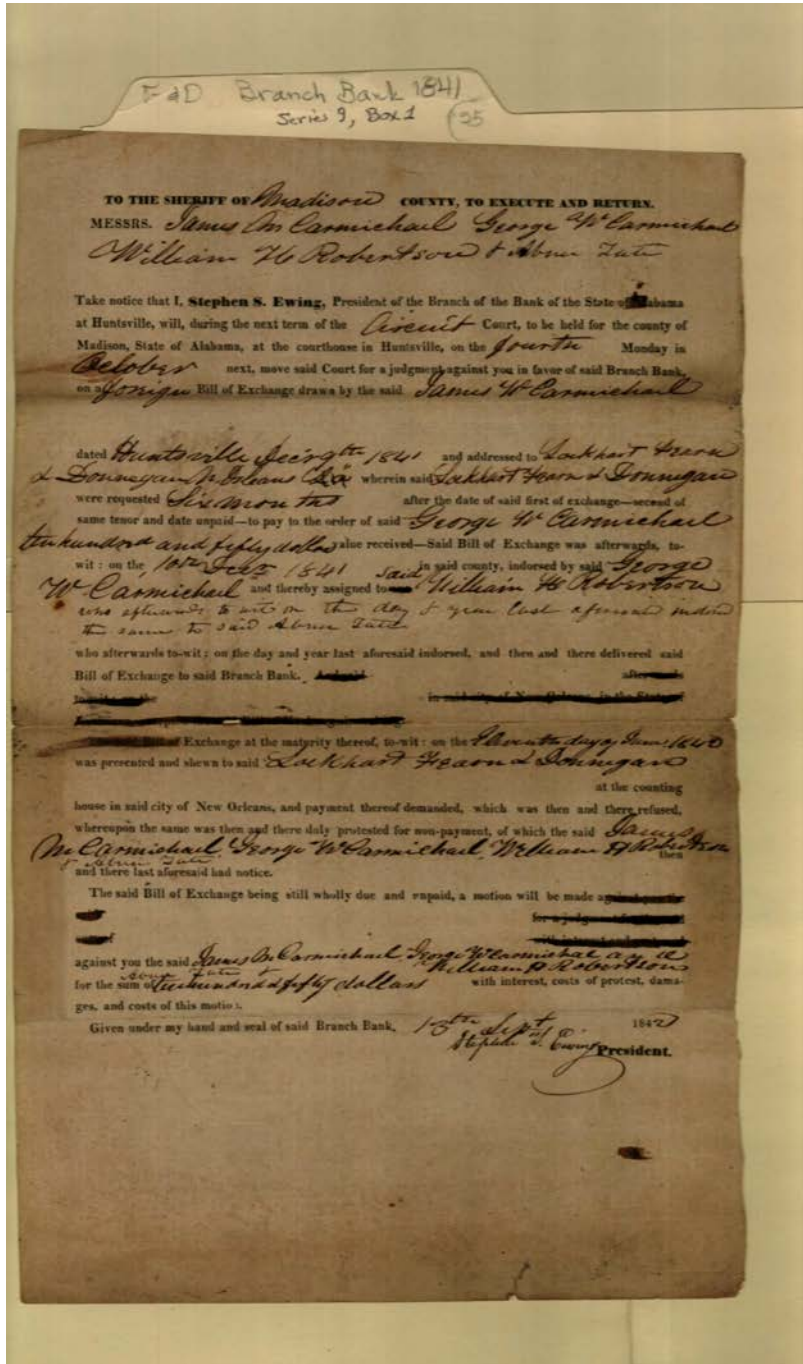 F&D Branch Bank 1841
Series 9, Box 1 25
TO THE SHERIFF OF Madison COUNTY, TO EXECUTE AND RETURN.
MESSRS. James M Carmichael George W Carmichael
William H Robertson & Abner Tate
Take notice that I, Stephen S. Ewing, President of the Branch of the Bank of the State of Alabama
at Huntsville, will, during the next term of the Circuit Court, to be held for the county of
Madison, State of Alabama, at the courthouse in Huntsville, on the fourth Monday in
October next, move said Court for a judgment against you in favor of said Branch Bank,
on a foreign Bill of Exchange drawn by the said James W Carmichael
dated Huntsville Decr 9th 1841 and addressed to Lockhart Fearn
& Donnegan N Orleans La wherein said Lockhart Fearn & Donnegan
were requested Six months after the date of said first of exchange—second of
same tenor and date unpaid—to pay to the order of said George W Carmichael
hundred and fifty dollars value received—Said Bill of Exchange was afterwards, to-
wit: on the 10th Decr 1841 in said county, indorsed by said George
W Carmichael and thereby assigned to said William H Robertson
who afterwards to wit on the day & year last aforesaid indorsed
the same to said Abner Tate
who afterwards to-wit: on the day and year last aforesaid indorsed, and then and there delivered said
Bill of Exchange to said Branch Bank.
in said city of New Orleans, in the State of
Bill of Exchange at the maturity thereof, to-wit: on the Eleventh day of June 1842
was presented and shewn to said Lockhart Fearn & Donnegan
at the counting
house in said city of New Orleans, and payment thereof demanded, which was then and there refused,
whereupon the same was then and there duly protested for non-payment, of which the said James
M Carmichael, George W Carmichael, William H Robertson
& Abner Tate then
and there last aforesaid had notice.
The said Bill of Exchange being still wholly due and unpaid, a motion will be made against
for a judgment
against you the said James M Carmichael George W Carmichael
William H Robertson
Abner Tate
for the sum of hundred & fifty dollars with interest, costs of protest, dama-
ges, and costs of this motion.
Given under my hand and seal of said Branch Bank, Sept 1842
Stephen S. Ewing President.